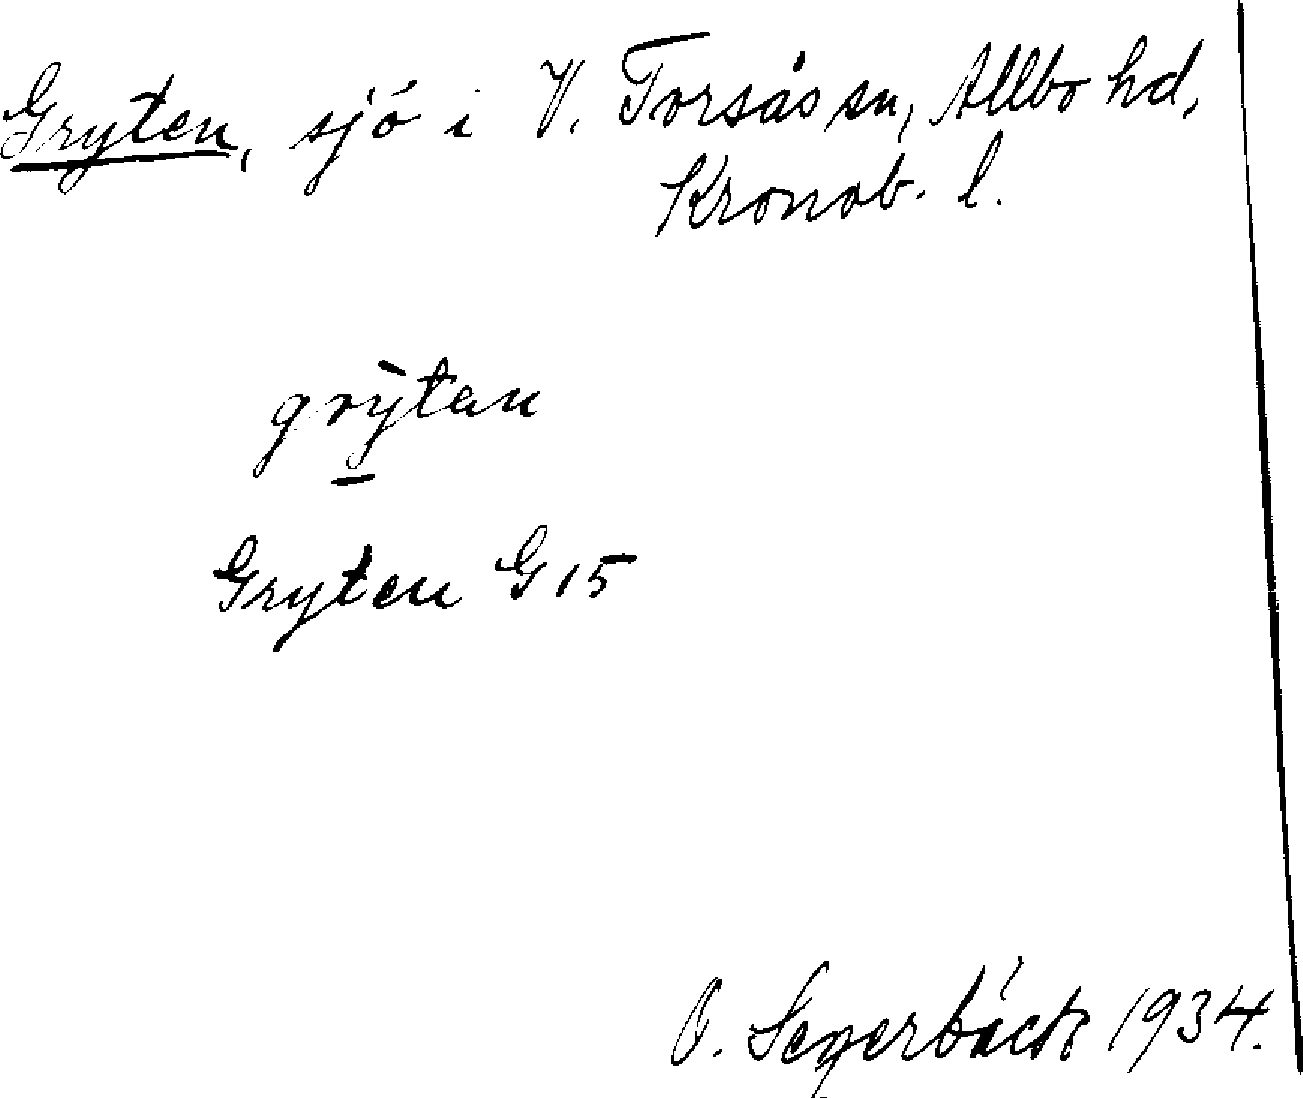 Gryten, sjö i V. Torsås sn, Allbo hd,
Kronob. l.
grỳtan
Gryten G 15
B. Segerbäck 1934.